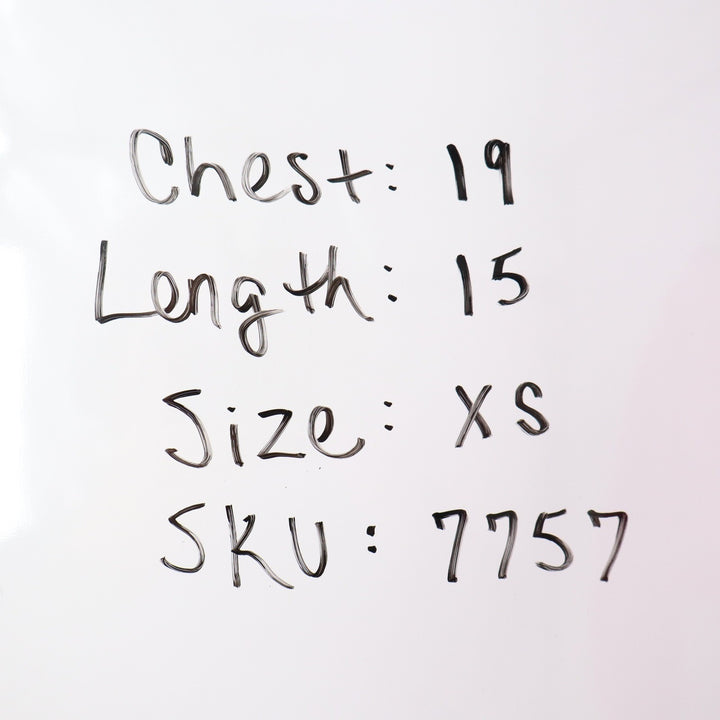 Chest: 19
Length: 15
Size: XS
SKU: 7757